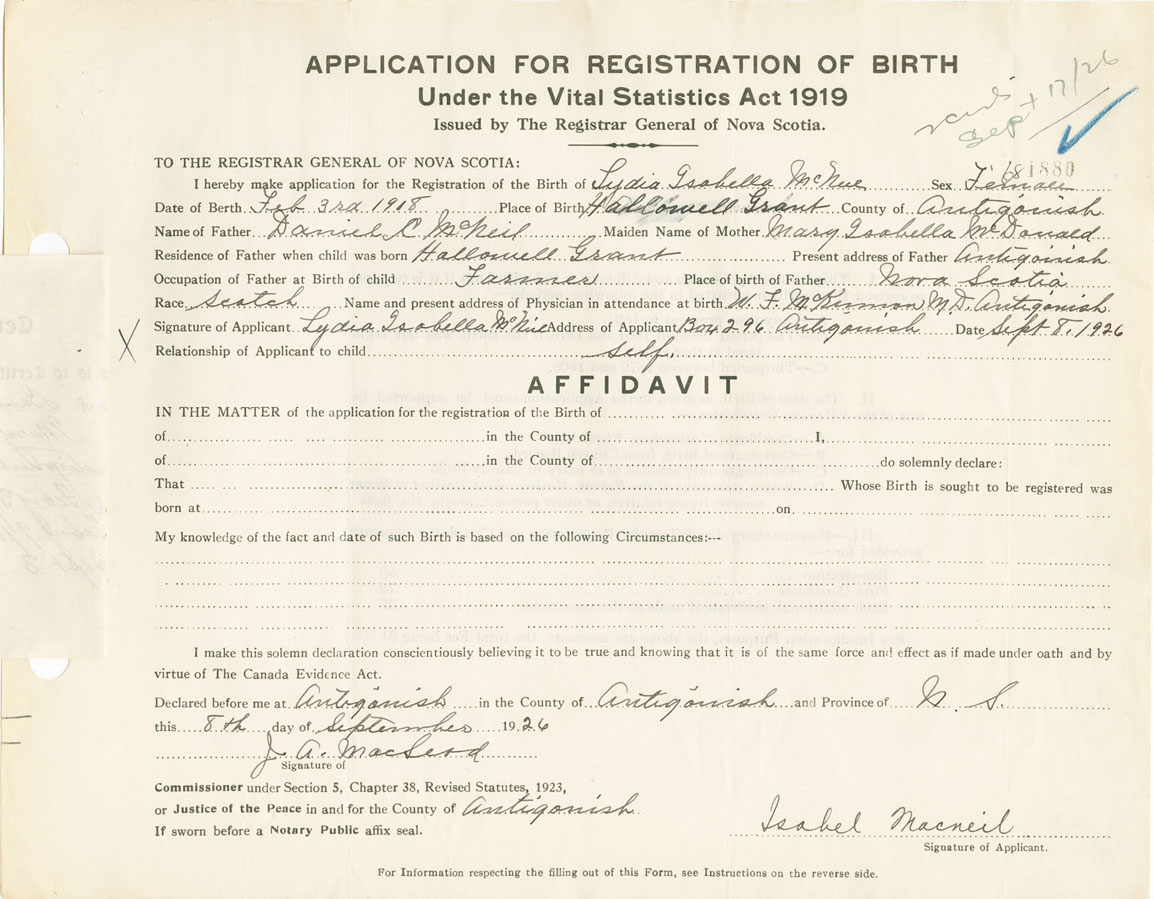 APPLICATION FOR REGISTRATION OF BIRTH
Under the Vital Statistics Act 1919
Issued by The Registrar General of Nova Scotia.
Sept 17/26
TO THE REGISTRAR GENERAL OF NOVA SCOTIA:
681880
I hereby make application for the Registration of the Birth of Lydia Isobella McNeil Sex Female
Date of Berth Feb 3rd 1918 Place of Birth Hallowell Grant County of Antigonish
Name of Father Daniel C McNeil Maiden Name of Mother Mary Isobella McDonald
Residence of Father when child was born Hallowell Grant Present address of Father Antigonish
Occupation of Father at Birth of child Farmer Place of birth of Father Nova Scotia
Race Scotch Name and present address of Physician in attendance at birth W. F. McKinnon M.D. Antigonish
Signature of Applicant Lydia Isobella McNeil Address of Applicant Box 296 Antigonish Date Sept 8, 1926
X Relationship of Applicant to child self.
AFFIDAVIT
IN THE MATTER of the application for the registration of the Birth of
of in the County of I,
of in the County of do solemnly declare:
That Whose Birth is sought to be registered was
born at on
My knowledge of the fact and date of such Birth is based on the following Circumstances:--
I make this solemn declaration conscientiously believing it to be true and knowing that it is of the same force and effect as if made under oath and by
virtue of The Canada Evidence Act.
Declared before me at Antigonish in the County of Antigonish and Province of N. S.
this 8th day of September 1926
J. A. MacLeod
Signature of
Commissioner under Section 5, Chapter 38, Revised Statutes, 1923,
or Justice of the Peace in and for the County of Antigonish
If sworn before a Notary Public affix seal.
Isabel Macneil
Signature of Applicant.
For Information respecting the filling out of this Form, see Instructions on the reverse side.